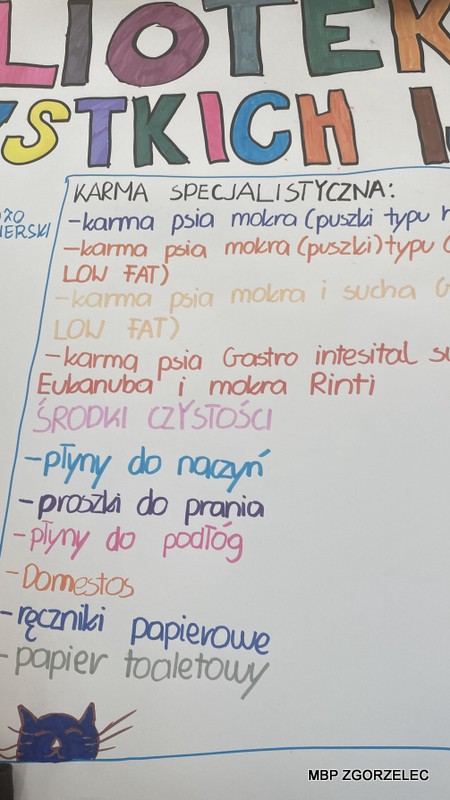 KARMA SPECJALISTYCZNA:
-karma psia mokra (puszki typu
-karma psia mokra (puszki) typu
LOW FAT)
-karma psia mokra i sucha
LOW FAT)
-karma psia Gastro intesital
Eukanuba i mokra Rinti
ŚRODKI CZYSTOŚCI
-płyny do naczyń
-proszki do prania
-płyny do podłóg
-Domestos
-ręczniki papierowe
-papier toaletowy
MBP ZGORZELEC